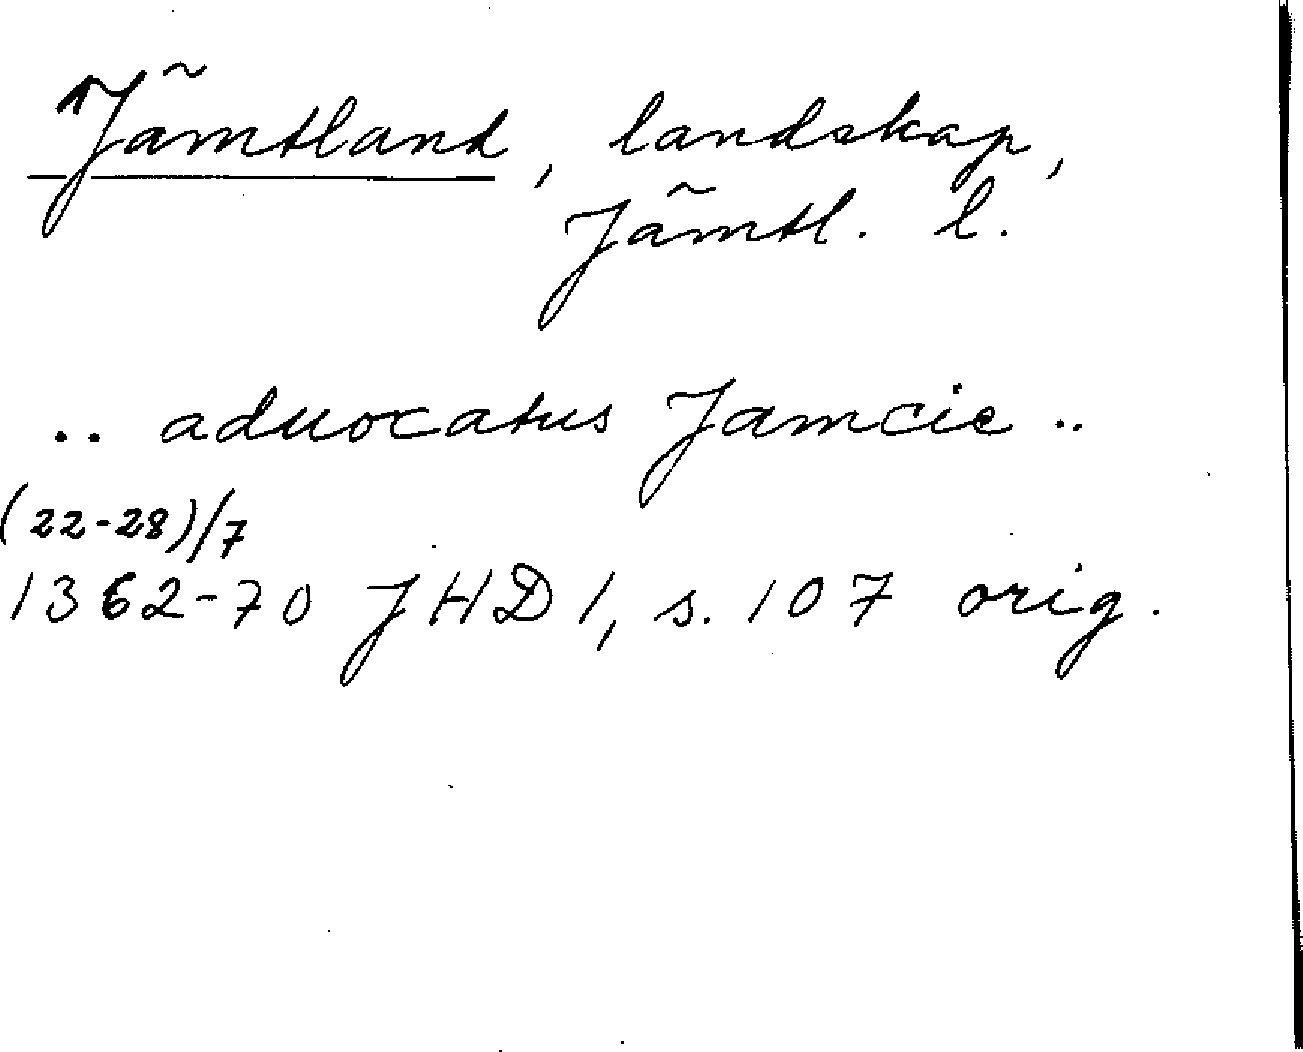 Jämtland, landskap,
Jämtl. l.
.. aduocatus Jamcie ..
(22-28)/7
1362-70 JHD 1, s. 107 orig.